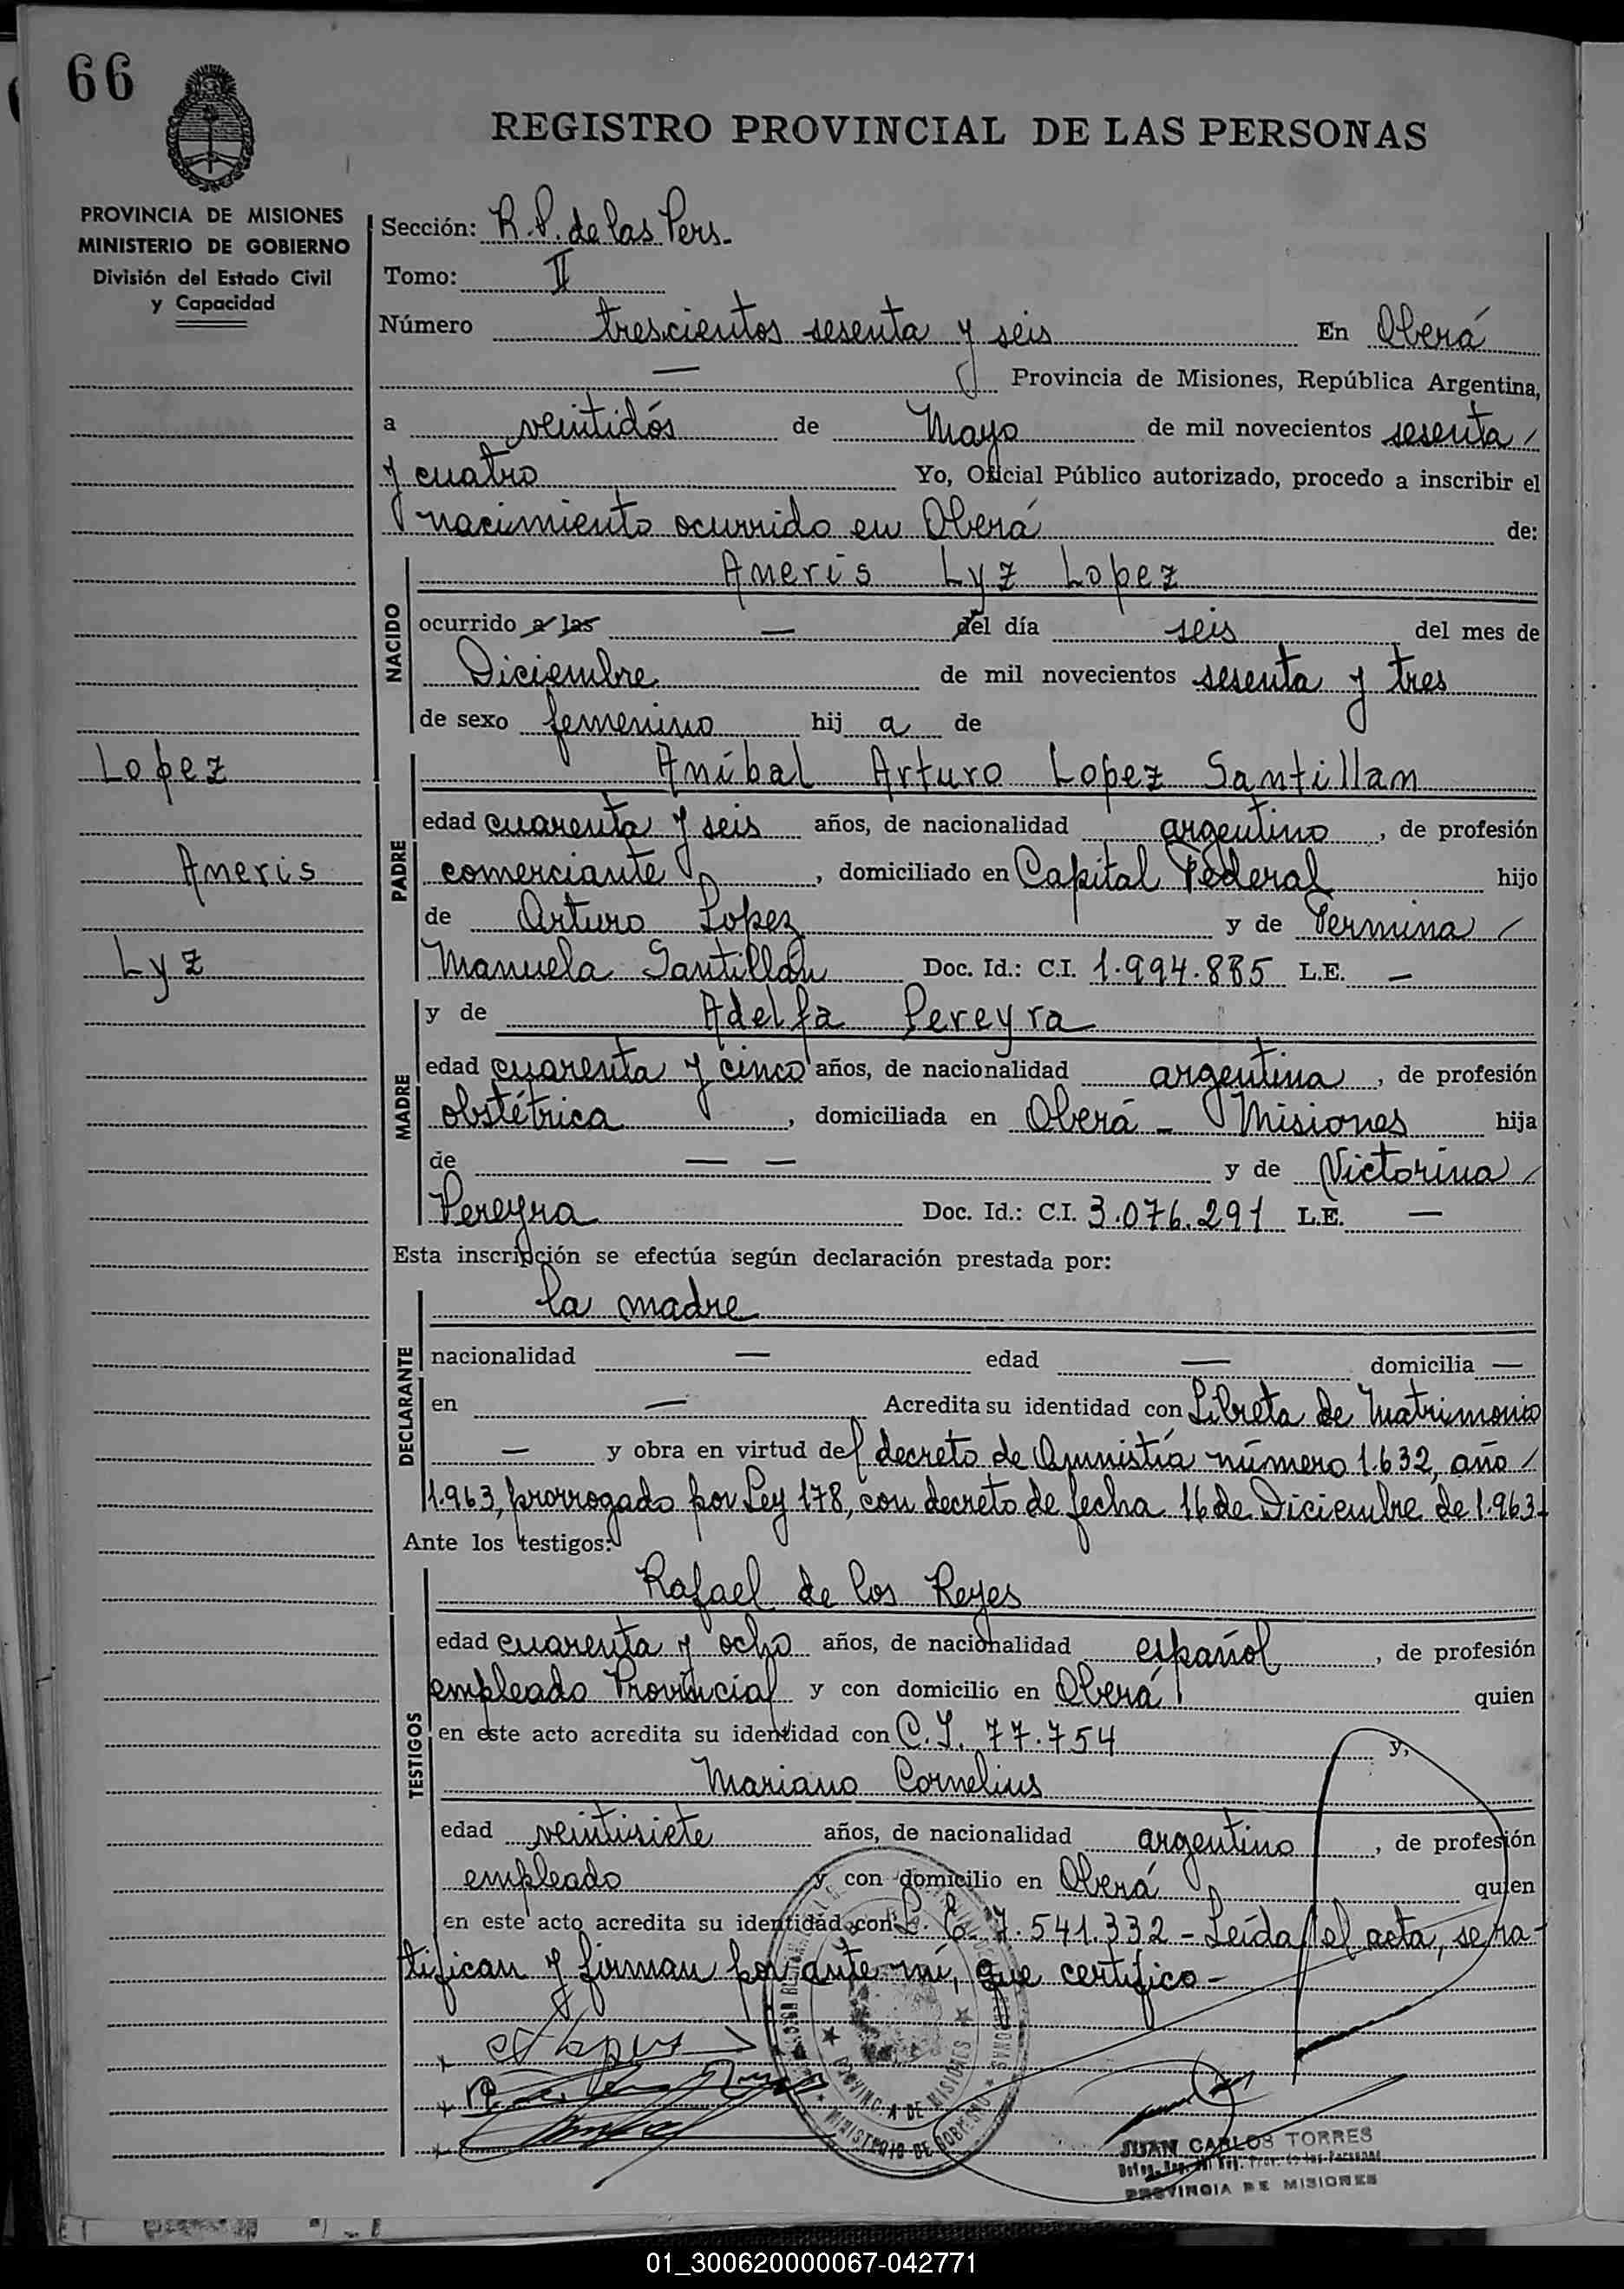 66
REGISTRO PROVINCIAL DE LAS PERSONAS
PROVINCIA DE MISIONES
MINISTERIO DE GOBIERNO
División del Estado Civil
y Capacidad
Sección: R.P. de las Pers.
Tomo: II
Número trescientos sesenta y seis En Oberá
— Provincia de Misiones, República Argentina,
a veintidós de Mayo de mil novecientos sesenta /
y cuatro Yo, Oficial Público autorizado, procedo a inscribir el
nacimiento ocurrido en Oberá de:
NACIDO
Aneris Lyz Lopez
ocurrido a las — del día seis del mes de
Diciembre de mil novecientos sesenta y tres
de sexo femenino hij a de
Lopez
Aneris
Lyz
PADRE
Aníbal Arturo Lopez Santillan
edad cuarenta y seis años, de nacionalidad argentino, de profesión
comerciante, domiciliado en Capital Federal hijo
de Arturo Lopez y de Fermina /
Manuela Santillán Doc. Id.: C.I. 1.994.885 L.E. —
MADRE
y de Adelfa Pereyra
edad cuarenta y cinco años, de nacionalidad argentina, de profesión
obstétrica, domiciliada en Oberá - Misiones hija
de — — y de Victorina /
Pereyra Doc. Id.: C.I. 3.076.291 L.E. —
Esta inscripción se efectúa según declaración prestada por:
DECLARANTE
la madre
nacionalidad — edad — domicilia —
en — Acredita su identidad con Libreta de Matrimonio
— y obra en virtud del decreto de Amnistía número 1.632, año /
1.963, prorrogado por Ley 178, con decreto de fecha 16 de Diciembre de 1.963-
Ante los testigos:
TESTIGOS
Rafael de los Reyes
edad cuarenta y ocho años, de nacionalidad español, de profesión
empleado Provincial y con domicilio en Oberá quien
en este acto acredita su identidad con C.I. 77.754 y,
Mariano Cornelius
edad veintisiete años, de nacionalidad argentino, de profesión
empleado y con domicilio en Oberá quien
en este acto acredita su identidad con L. E. 7.541.332 - Leída el acta, se ra-
tifican y firman por ante mí, que certifico -
PROVINCIA DE MISIONES
MINISTERIO DE GOBIERNO
JUAN CARLOS TORRES
PROVINCIA DE MISIONES
01_300620000067-042771